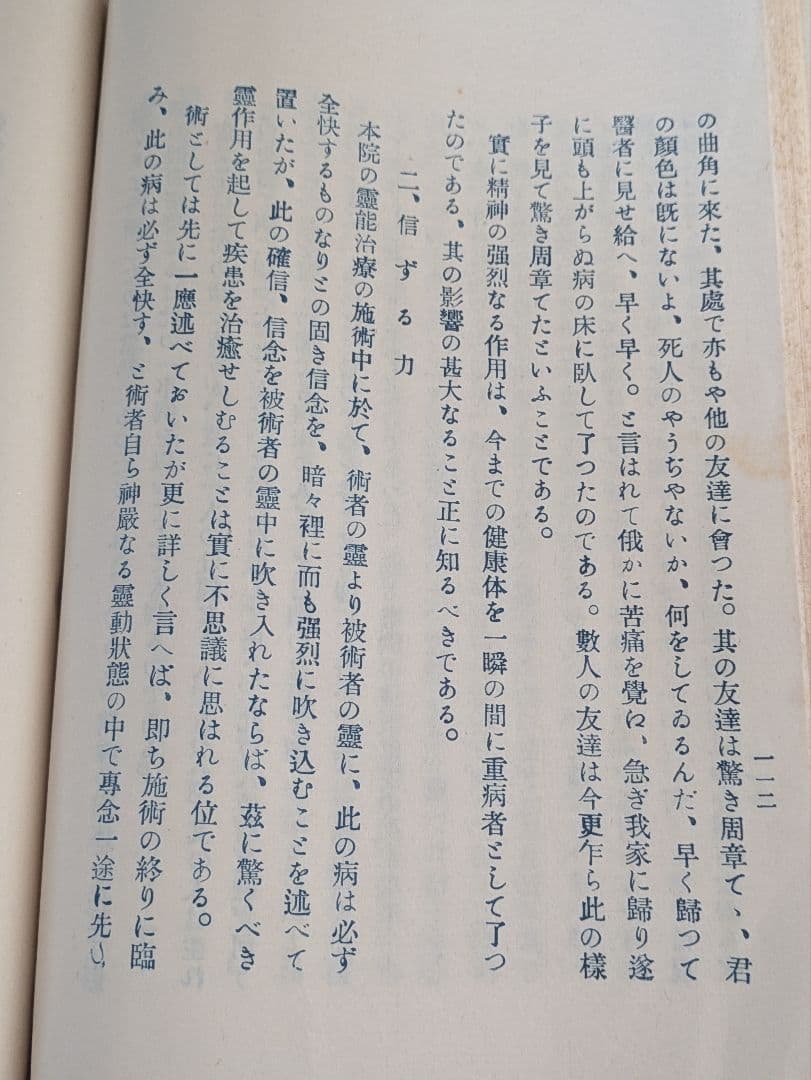 一一二
の曲角に來た、其處で亦もや他の友達に會つた。其の友達は驚き周章てゝ、君
の顏色は旣にないよ、死人のやうぢやないか、何をしてゐるんだ、早く歸つて
醫者に見せ給へ、早く早く。と言はれて俄かに苦痛を覺ね、急ぎ我家に歸り遂
に頭も上がらぬ病の床に臥して了つたのである。數人の友達は今更乍ら此の樣
子を見て驚き周章てたといふことである。
實に精神の强烈なる作用は、今までの健康体を一瞬の間に重病者として了つ
たのである、其の影響の甚大なること正に知るべきである。
二、信ずる力
本院の靈能治療の施術中に於て、術者の靈より被術者の靈に、此の病は必ず
全快するものなりとの固き信念を、暗々裡に而も强烈に吹き込むことを述べて
置いたが、此の確信、信念を被術者の靈中に吹き入れたならば、茲に驚くべき
靈作用を起して疾患を治癒せしむることは實に不思議に思はれる位である。
術としては先に一應述べておいたが更に詳しく言へば、卽ち施術の終りに臨
み、此の病は必ず全快す、と術者自ら神嚴なる靈動狀態の中で專念一途に先